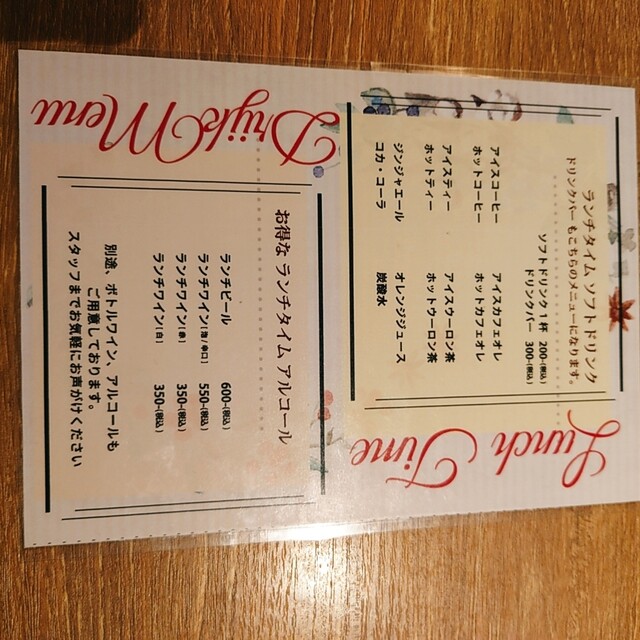 Lunch Time
ランチタイム ソフトドリンク
ドリンクバーもこちらのメニューになります。
ソフトドリンク1杯 200-(税込)
ドリンクバー 300-(税込)
アイスコーヒー アイスカフェオレ
ホットコーヒー ホットカフェオレ
アイスティー アイスウーロン茶
ホットティー ホットウーロン茶
ジンジャエール オレンジジュース
コカ・コーラ 炭酸水
Drink Menu
お得な ランチタイム アルコール
ランチビール 600-(税込)
ランチワイン(泡/辛口) 550-(税込)
ランチワイン(赤) 350-(税込)
ランチワイン(白) 350-(税込)
別途、ボトルワイン、アルコールも
ご用意しております。
スタッフまでお気軽にお声がけください